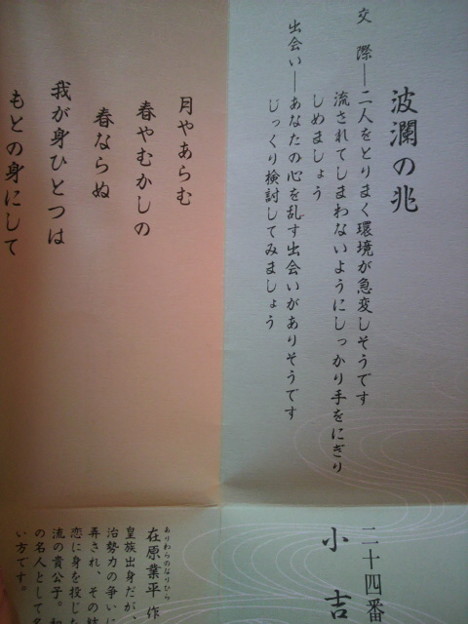 波瀾の兆
交 際―二人をとりまく環境が急変しそうです
流されてしまわないようにしっかり手をにぎり
しめましょう
出会い―あなたの心を乱す出会いがありそうです
じっくり検討してみましょう
月やあらむ
春やむかしの
春ならぬ
我が身ひとつは
もとの身にして
二十四番
小吉
ありわらのなりひら
在原業平 作
皇族出身だが、
治勢力の争いに
弄され、その
恋に身を投じた
流の貴公子。和
の名人として名
い方です。